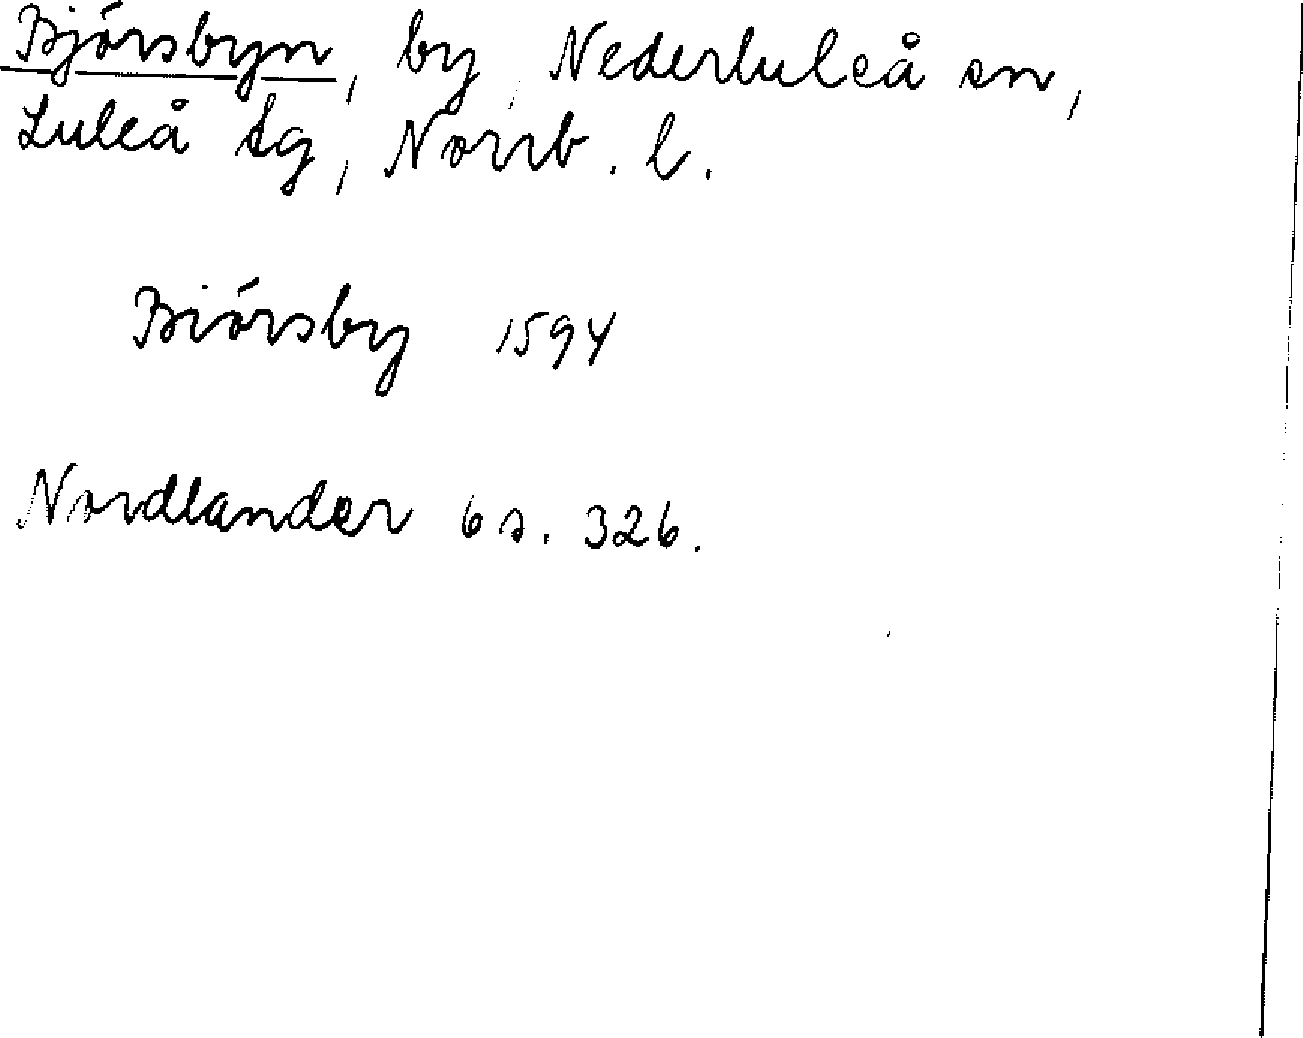 Björsbyn, by, Nederluleå sn,
Luleå tg, Norrb. l.
Biörsby 1594
Nordlander 6 s. 326.